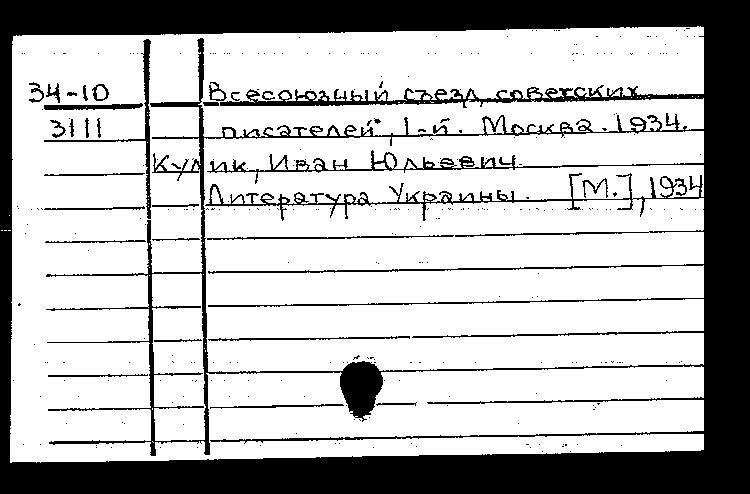 34-10 Всесоюзный съезд советских
3111 писателей, 1-й. Москва. 1934.
Кулик, Иван Юльевич
Литература Украины. [М.], 1934